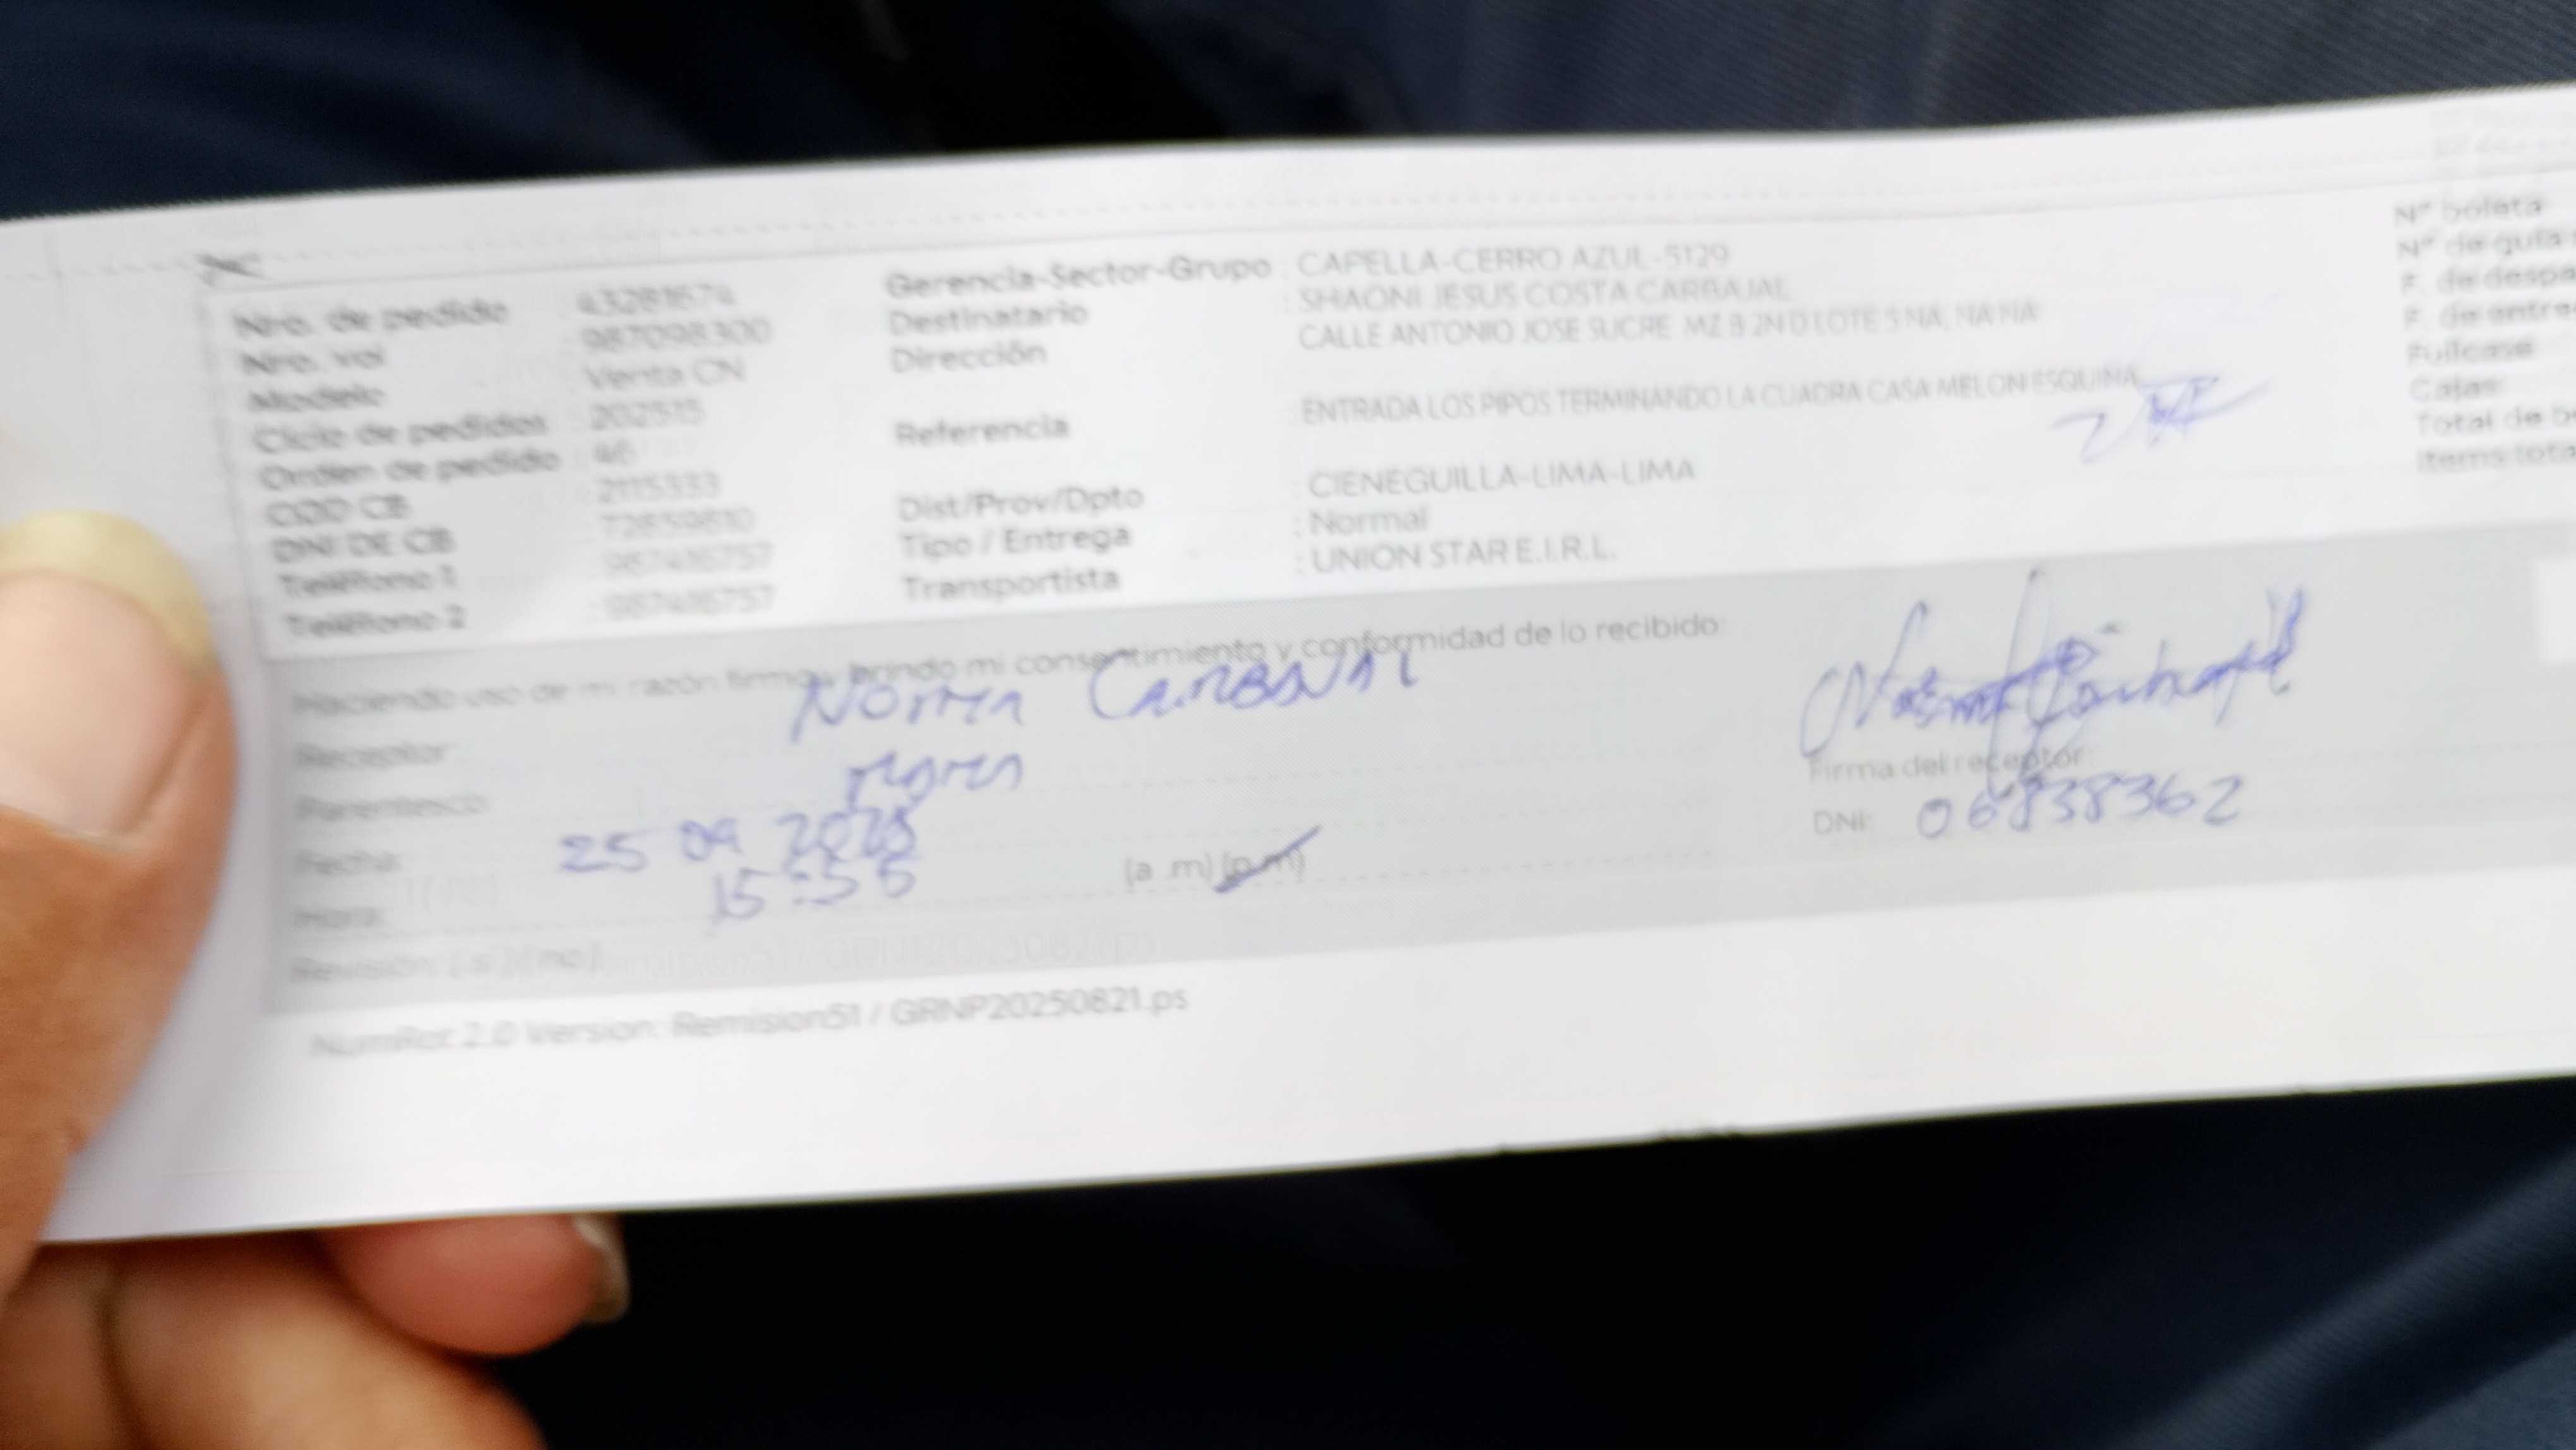 Nro. de pedido : 43281674
Nro. vol : 987098300
Modelo : Venta CN
Ciclo de pedidos : 202515
Orden de pedido : 46
COD CB : 2115333
DNI DE CB
Teléfono 1 : 987416757
Teléfono 2 : 987416757
Gerencia-Sector-Grupo : CAPELLA-CERRO AZUL-5129
Destinatario : SHAONI JESUS COSTA CARBAJAL
Dirección : CALLE ANTONIO JOSE SUCRE MZ B 2ND LOTE 5 NA, NA NA
Referencia : ENTRADA LOS PIPOS TERMINANDO LA CUADRA CASA MELON ESQUINA
Dist/Prov/Dpto : CIENEGUILLA-LIMA-LIMA
Tipo / Entrega : Normal
Transportista : UNION STAR E.I.R.L.
N° boleta
N° de guía
F. de despa
F. de entre
Fullcase
Cajas:
Total de b
Items tota
Haciendo uso de mi razón firmo y brindo mi consentimiento y conformidad de lo recibido:
Receptor: Norma Carbajal
Parentesco:
Fecha: 25 09 2025
Hora: 15:55 (a .m) (p.m)
Revisión: [ si ] [ no ]
Firma del receptor:
DNI: 06838362
NumRot 2.0 Version: Remision51 / GRNP20250821.ps